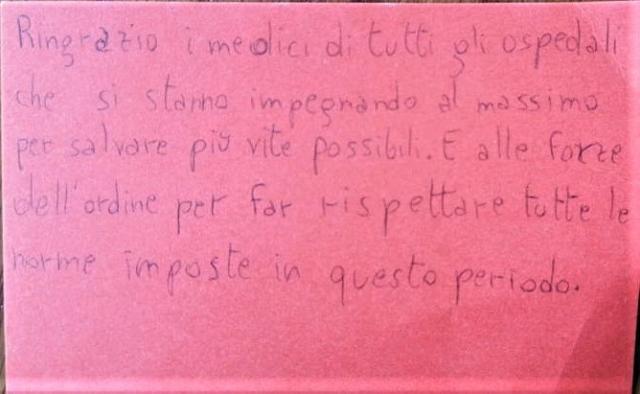 Ringrazio i medici di tutti gli ospedali
che si stanno impegnando al massimo
per salvare più vite possibili. E alle forze
dell'ordine per far rispettare tutte le
norme imposte in questo periodo.